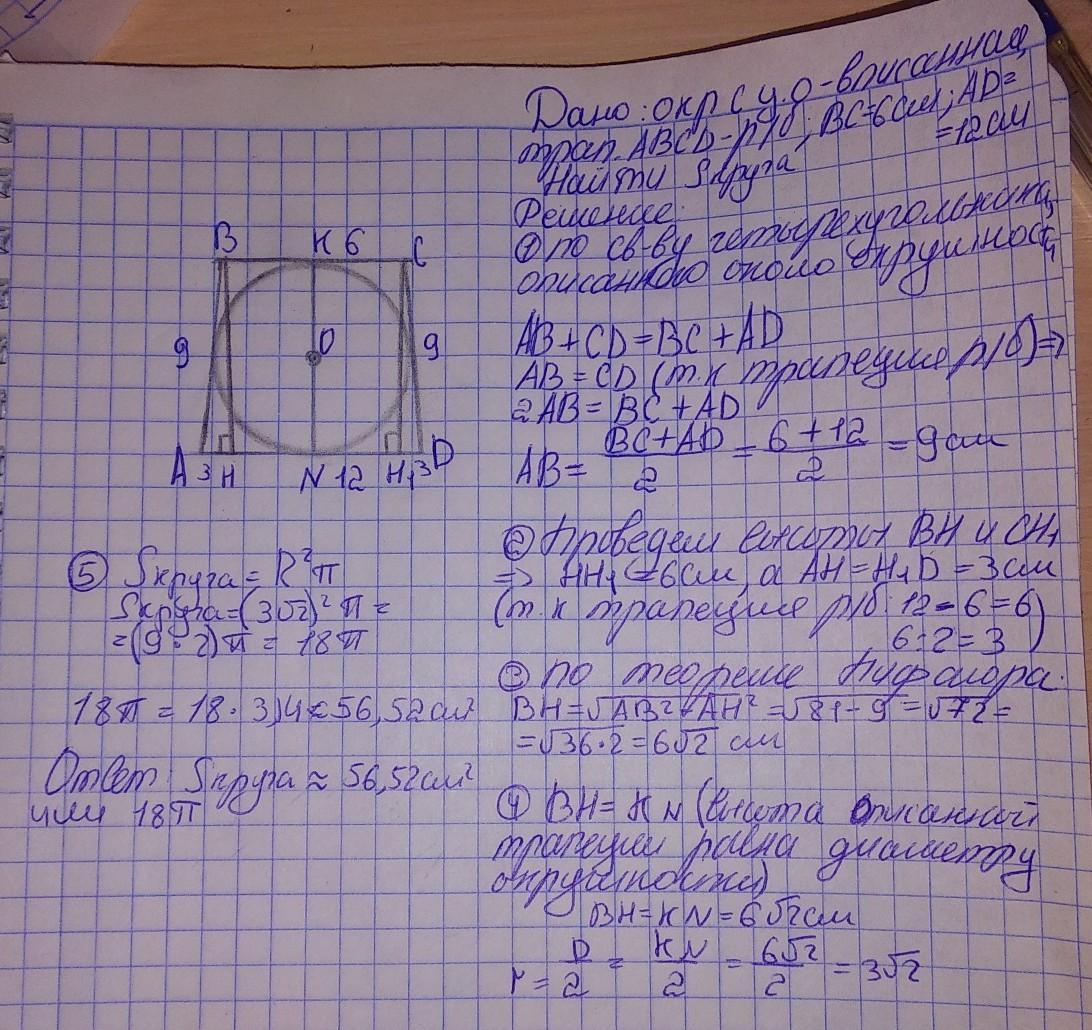 Дано: окр с ц. О - вписанная,
трап. ABCD - р/б; BC=6см; AD=
=12см
Найти Sкруга
Решение:
① по св-ву четырехугольника,
описанного около окружности,
AB + CD = BC + AD
AB = CD (т.к трапеция р/б) =>
2AB = BC + AD
AB = BC + AD / 2 = 6 + 12 / 2 = 9 см
② Проведем высоты BH и CH₁
=> HH₁ = 6см, а AH = H₁D = 3 см
(т.к трапеция р/б 12 - 6 = 6
6 : 2 = 3)
③ по теореме Пифагора:
BH = √AB² - AH² = √81 - 9 = √72 =
= √36·2 = 6√2 см
④ BH = KN (высота описанной
трапеции равна диаметру
окружности)
BH = KN = 6√2 см
r = D/2 = KN/2 = 6√2/2 = 3√2
B K 6 C
9 O 9
A 3 H N 12 H₁ 3 D
⑤ Sкруга = R²π
Sкруга = (3√2)² π =
= (9·2)π = 18π
18π = 18 · 3,14 = 56,52 см²
Ответ: Sкруга ≈ 56,52 см²
или 18π